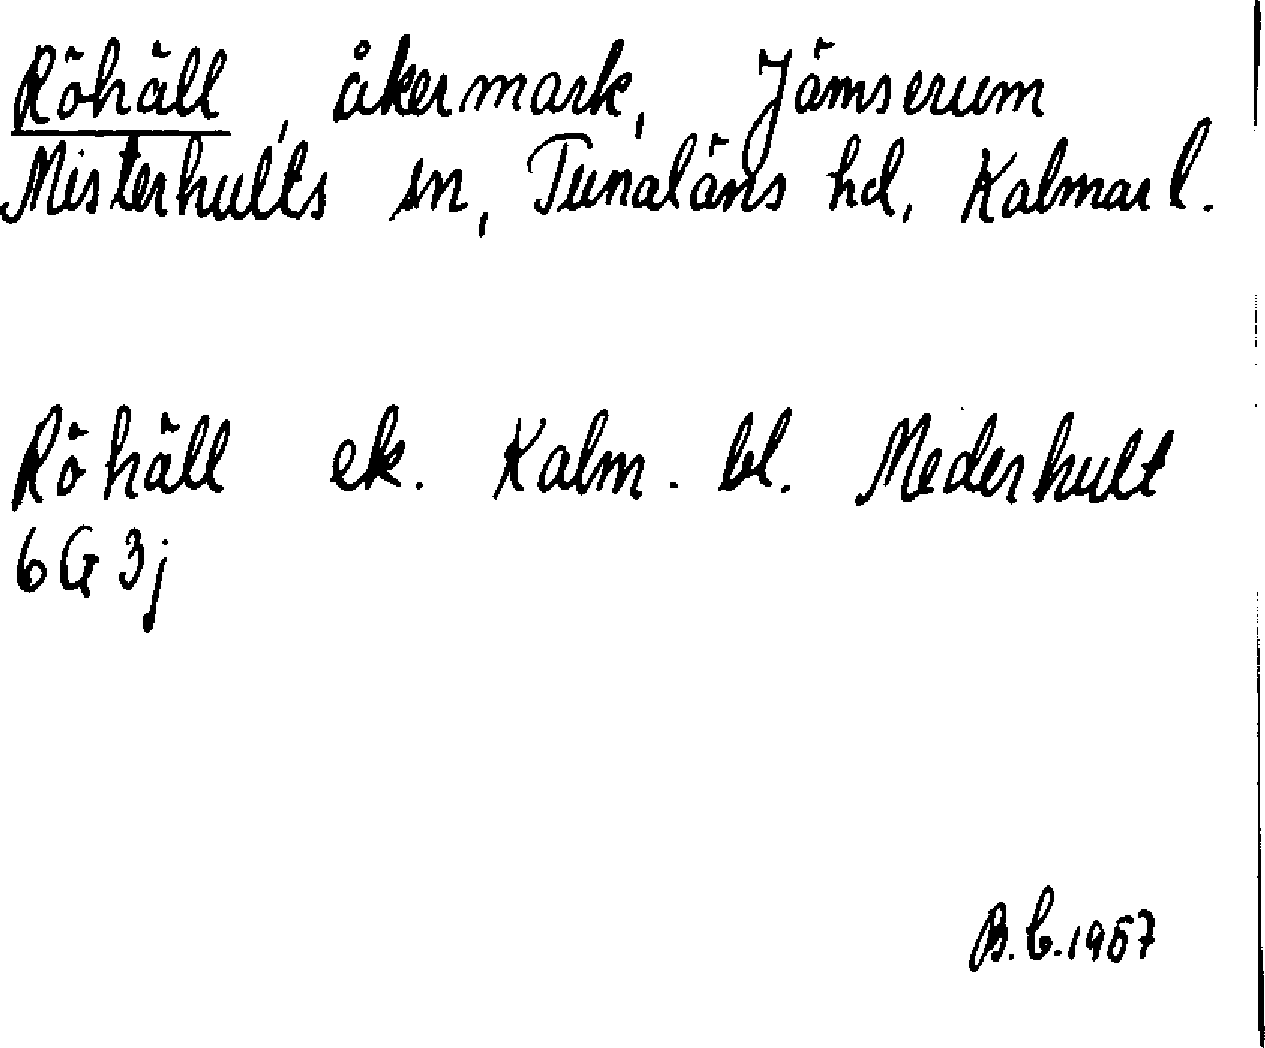 Röhäll, åkermark, Jämserum
Misterhults sn, Tunaläns hd, Kalmar l.
Röhäll ek. Kalm. bl. Mederhult
6G 3j
B.C. 1957